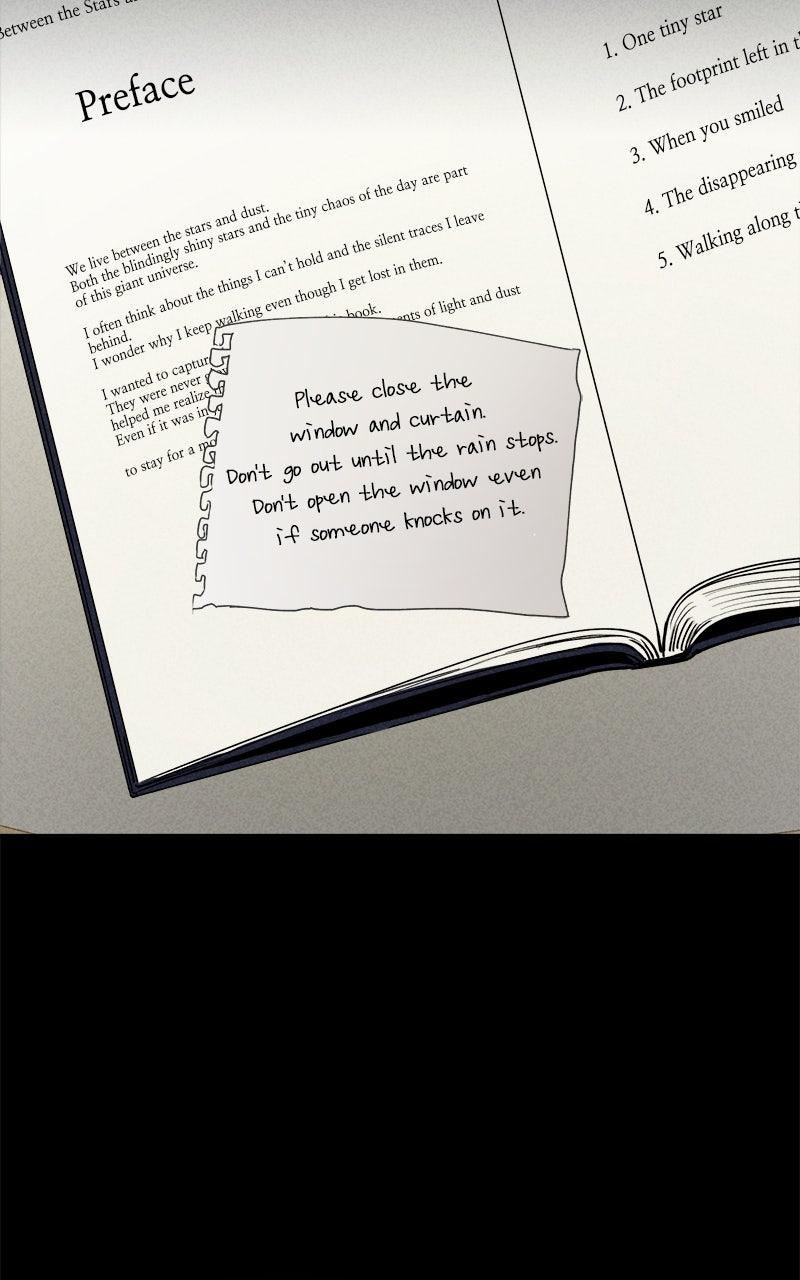 Between the Stars
Preface
We live between the stars and dust.
Both the blindingly shiny stars and the tiny chaos of the day are part
of this giant universe.
I often think about the things I can't hold and the silent traces I leave
behind.
I wonder why I keep walking even though I get lost in them.
I wanted to captur book.
They were never of light and dust
helped me realize
Even if it was in
to stay for a
Please close the
window and curtain.
Don't go out until the rain stops.
Don't open the window even
if someone knocks on it.
1. One tiny star
2. The footprint left in
3. When you smiled
4. The disappearing
5. Walking along